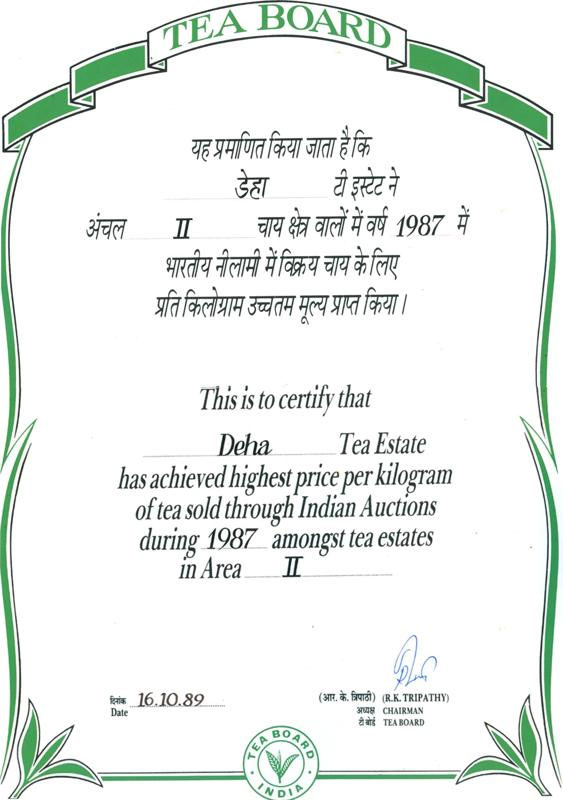 TEA BOARD
यह प्रमाणित किया जाता है कि
डेहा टी इस्टेट ने
अंचल II चाय क्षेत्र वालों में वर्ष 1987 में
भारतीय नीलामी में विक्रय चाय के लिए
प्रति किलोग्राम उच्चतम मूल्य प्राप्त किया।
This is to certify that
Deha Tea Estate
has achieved highest price per kilogram
of tea sold through Indian Auctions
during 1987 amongst tea estates
in Area II
दिनांक 16.10.89
Date
(आर. के. त्रिपाठी) (R.K. TRIPATHY)
अध्यक्ष CHAIRMAN
टी बोर्ड TEA BOARD
TEA BOARD
INDIA